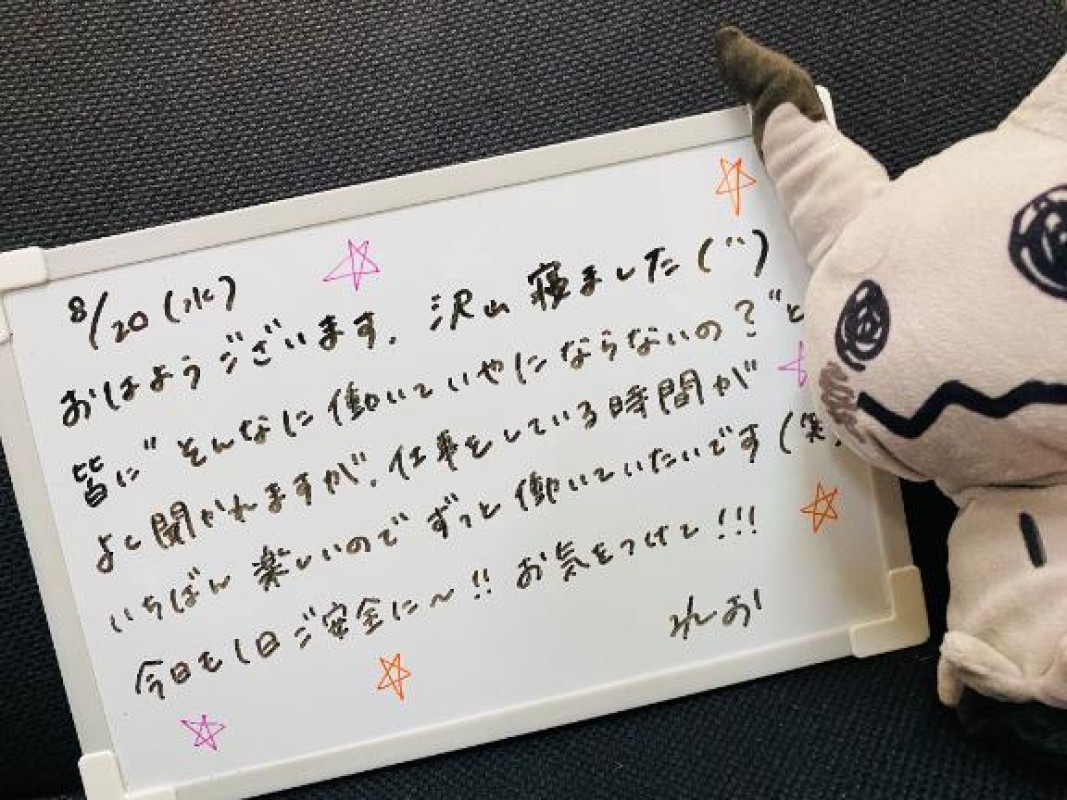 8/20(水)
おはようございます. 沢山 寝ました(¨)
皆に"そんなに働いていやにならないの？"と
よく聞かれますが、仕事をしている時間が
いちばん楽しいのでずっと働いていたいです(笑)
今日も1日ご安全に〜!! お気をつけて!!!
れお